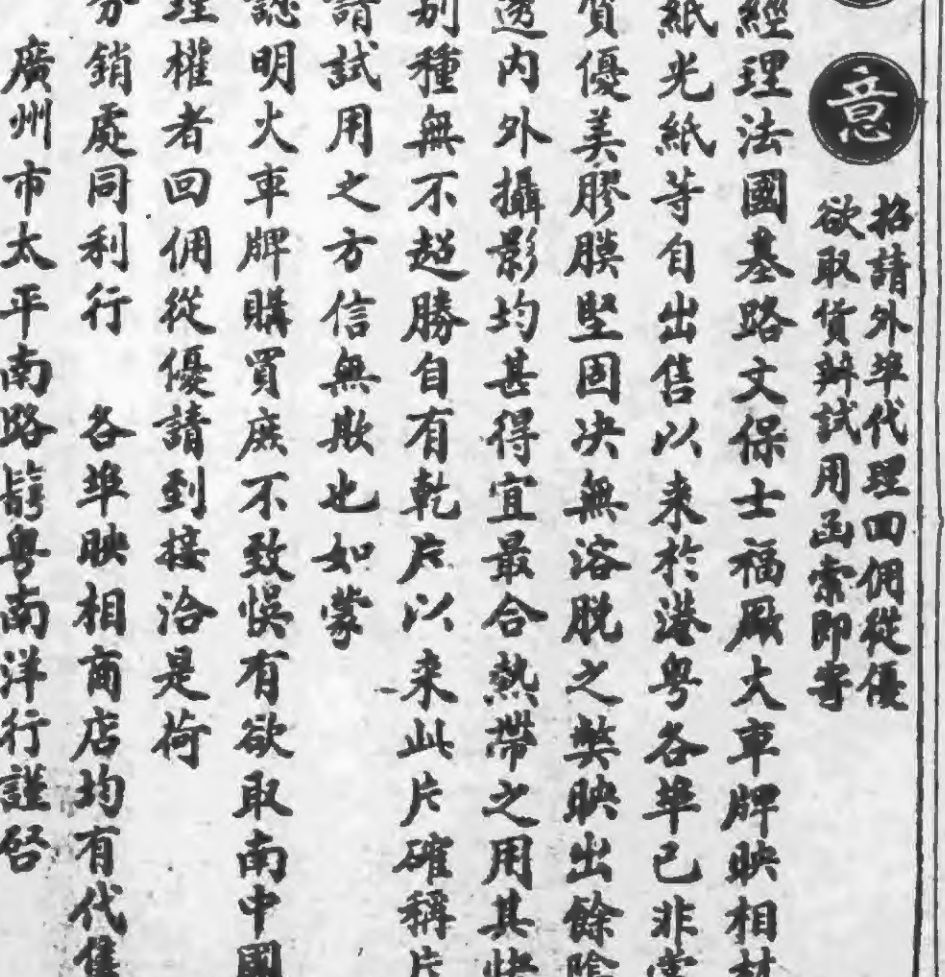 意
招請外埠代理回佣從優
欲取貨辦試用函索即寄
經理法國基路文保士福厰火車牌映相材
紙光紙等自出售以来於港粤各埠已非常
質優美膠膜堅固决無溶脱之獘映出餘陰
透内外攝影均甚得宜最合熱帶之用其快
别種無不超勝自有乾片以来此片確稱片
請試用之方信無欺也如蒙
認明火車牌購買庶不致悞有欲取南中國
理權者回佣從優請到接洽是荷
分銷處同利行　各埠映相商店均有代售
廣州市太平南路粤南洋行謹啓